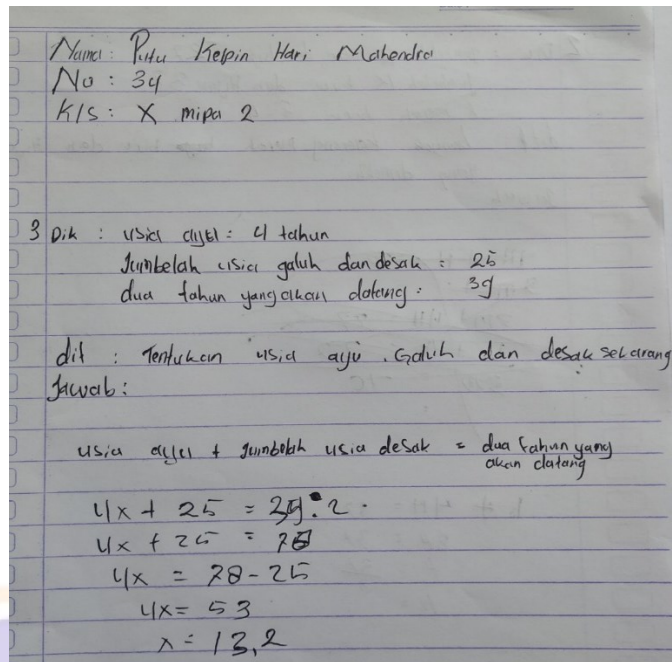 Nama: Putu Kelpin Hari Mahendra
No : 34
Kls : X mipa 2
3 Dik : usia ayu : 4 tahun
Jumbelah usia galuh dan desak : 25
dua tahun yang akan datang : 39
dit : Tentukan usia ayu . Galuh dan desak sekarang
Jawab :
usia ayu + Jumbelah usia desak = dua tahun yang
akan datang
4x + 25 = 39 : 2 .
4x + 25 = 78
4x = 78 - 25
4x = 53
x = 13,2